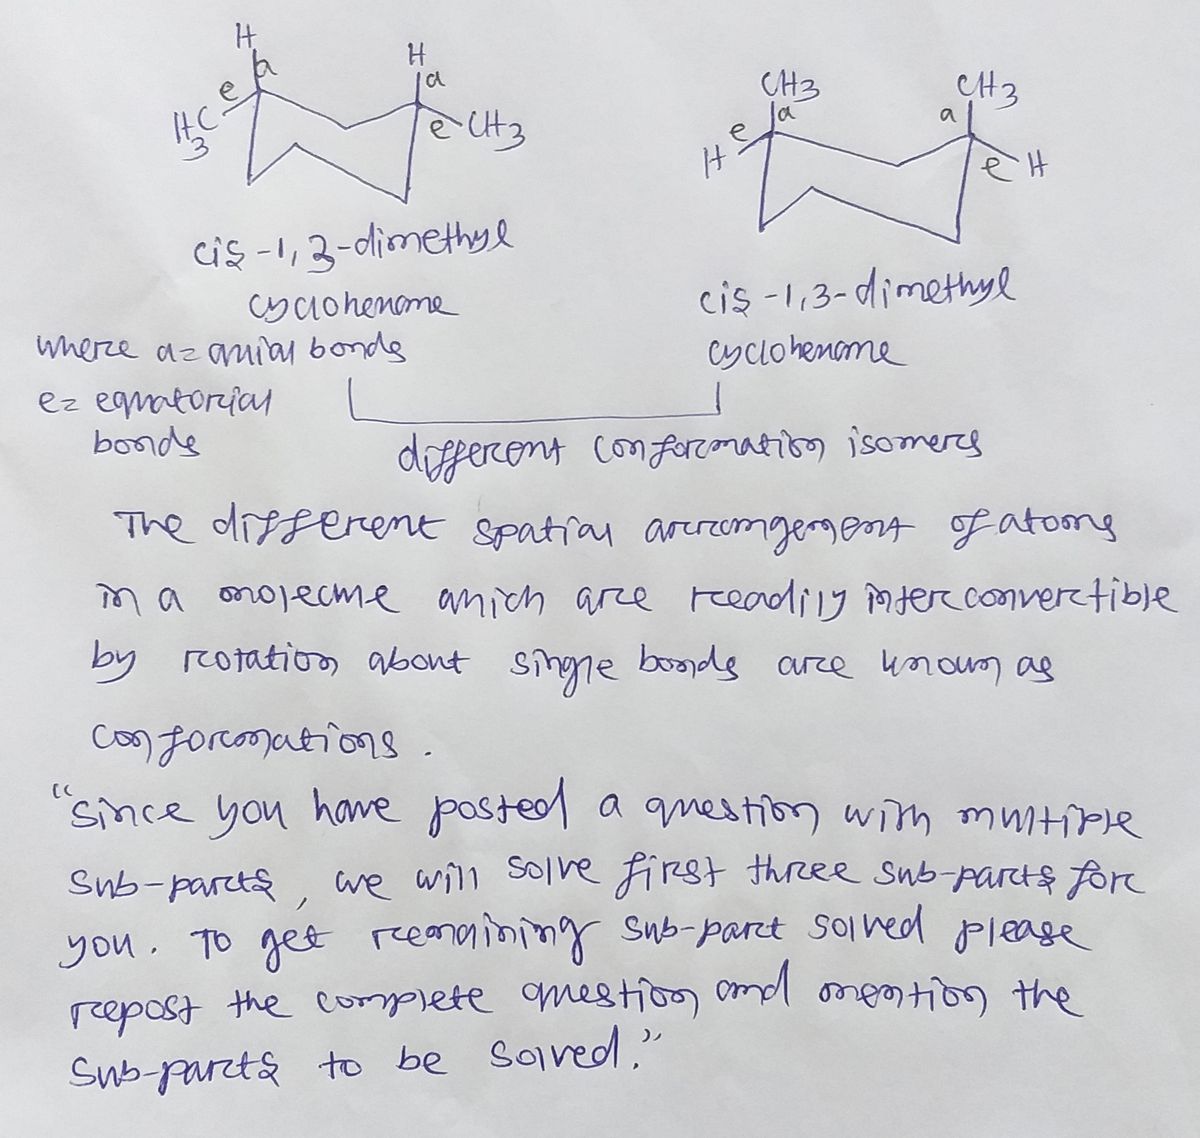 H
H
a
a
e
H3C
e CH3
CH3
CH3
a
a
e
H
e H
cis-1,3-dimethyl
cyclohexane
cis-1,3-dimethyl
cyclohexane
where a= axial bonds
e= equatorial
bonds
different conformation isomers
The different spatial arrangement of atoms
in a molecule which are readily interconvertible
by rotation about single bonds are known as
conformations.
"Since you have posted a question with multiple
sub-parts, we will solve first three sub-parts for
you. To get remaining sub-part solved please
repost the complete question and mention the
sub-parts to be solved."